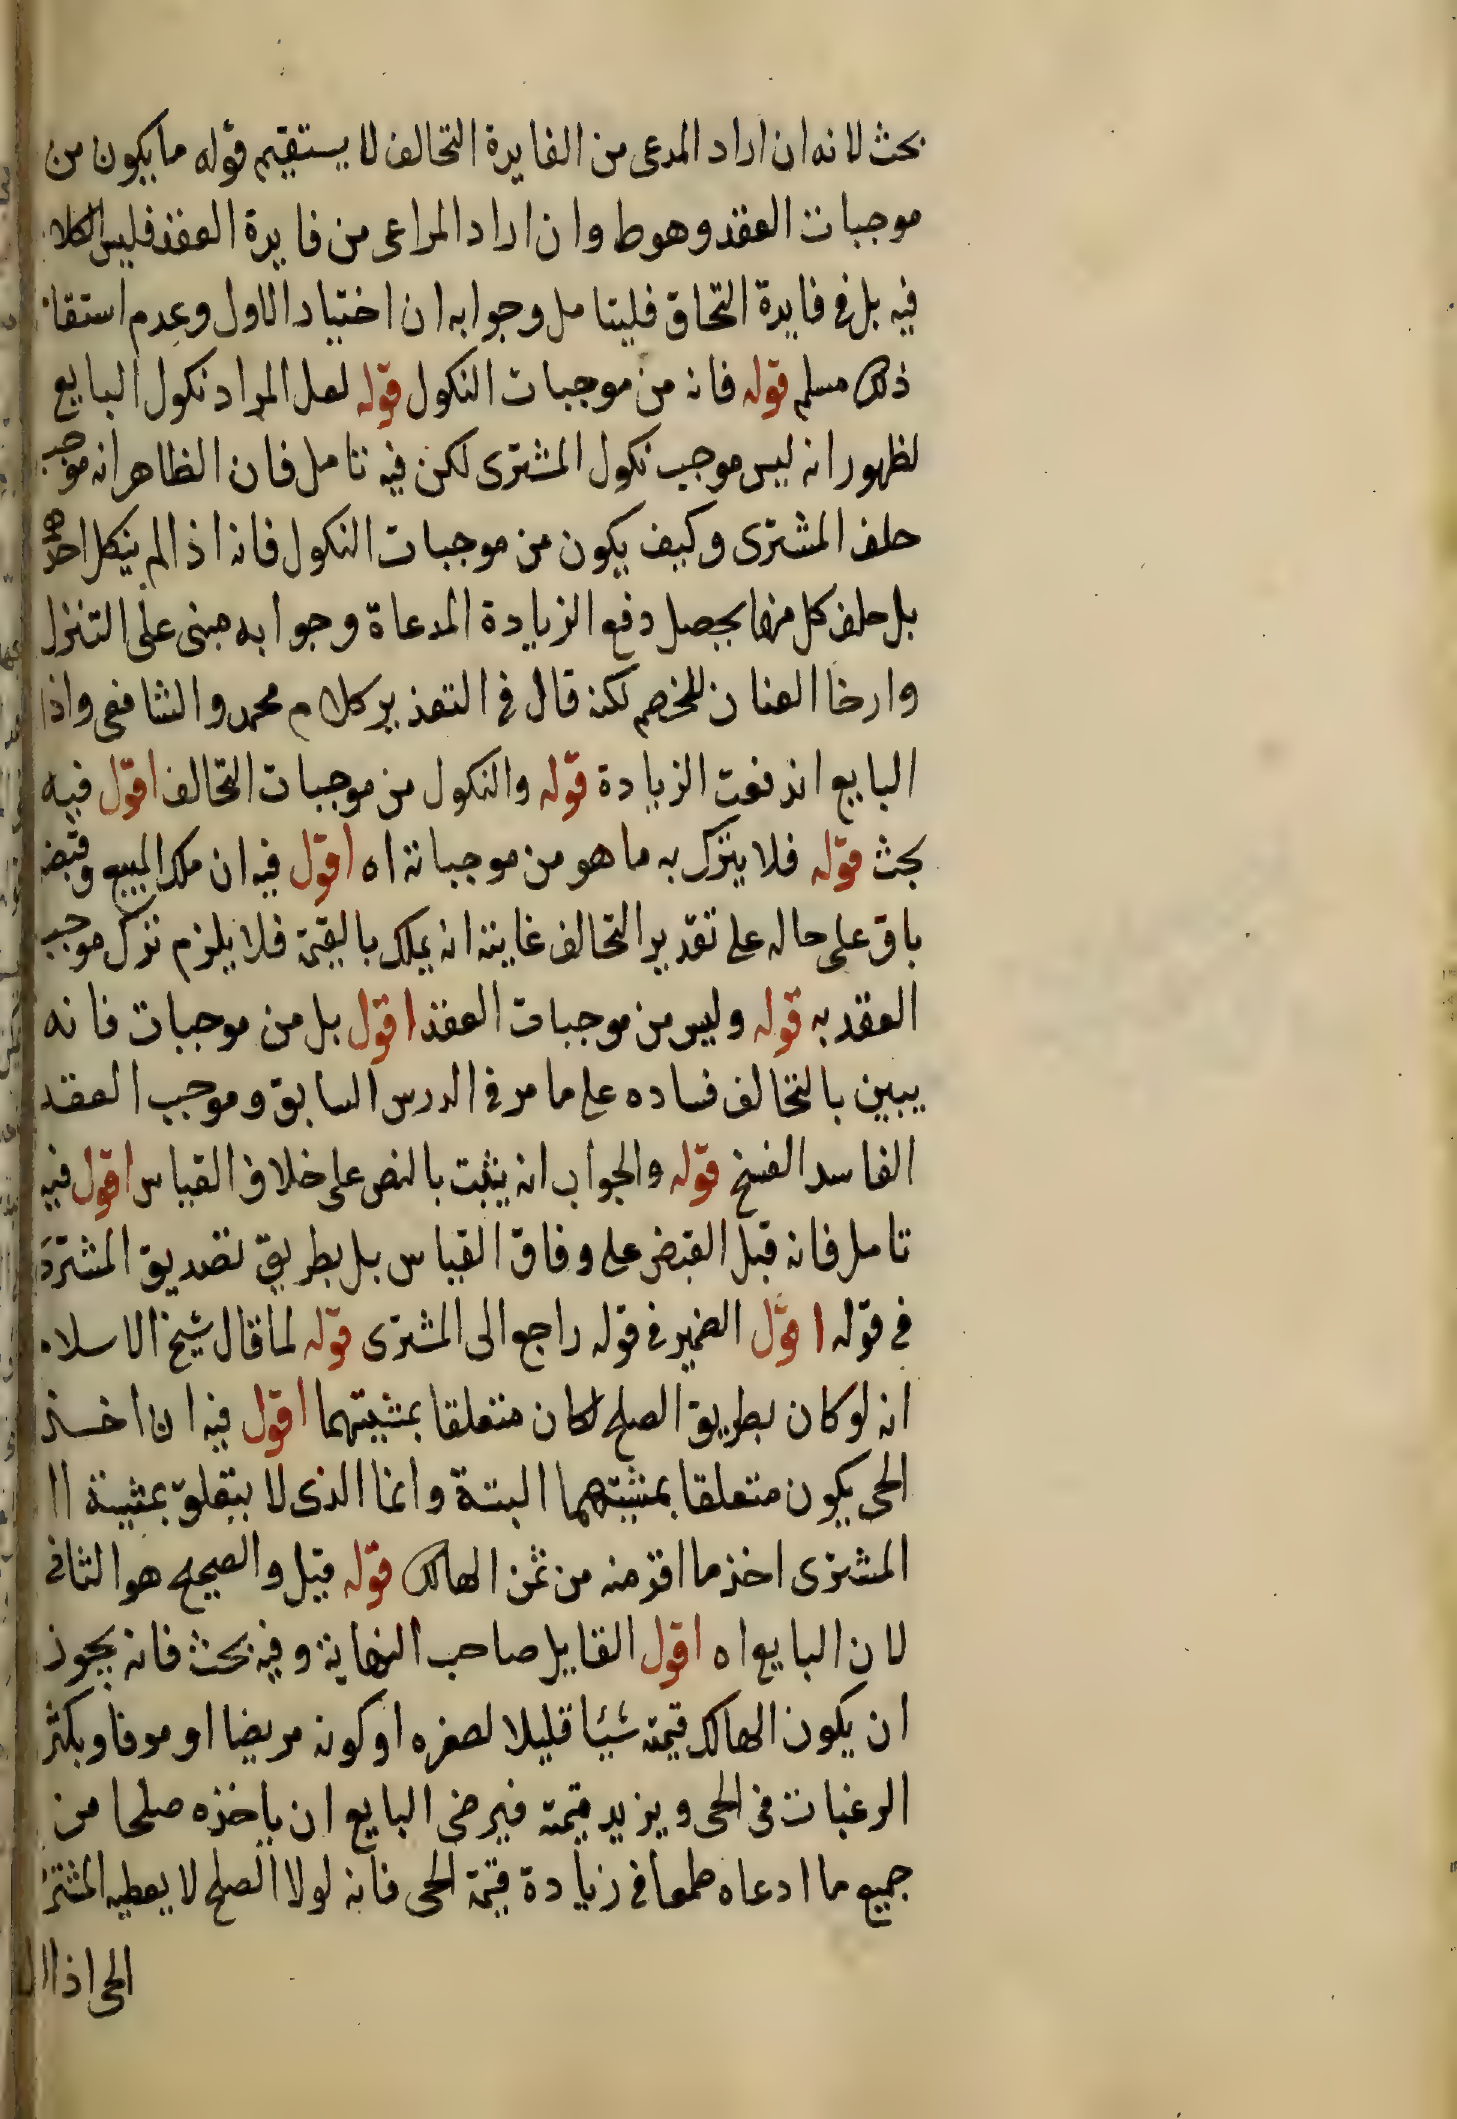 بحث لانه ان اراد المدعى من الفايدة التحالف لا يستقيم قوله ما يكون من
موجبات العقد وهوط وان اراد المراعى من فايدة العقد فليس الكلا
فيه بل فى فايدة التحاق فليتامل وجوابه ان اختيار الاول وعدم استقا
ذلك مسلم قوله فانه من موجبات النكول قوله لعل المراد نكول البايع
لظهور انه ليس موجب نكول المشترى لكن فيه تامل فان الظاهر انه موجب
حلف المشترى وكيف يكون من موجبات النكول فانه اذا لم ينكل احدهما
بل حلف كل منهما يحصل دفع الزيادة المدعاة وجوابه مبنى على التنزل
وارخا العنان للخصم لكنه قال فى التقدير كلام محمد والشافعى واذا
البايع اندفعت الزيادة قوله والنكول من موجبات التحالف اقول فيه
بحث قوله فلا يترك به ما هو من موجباته اه اقول فيه ان ملك المبيع وقبضه
باق على حاله على تقدير التحالف غايته انه يملك بالقيمة فلا يلزم ترك موجب
العقد به قوله وليس من موجبات العقد اقول بل من موجبات فانه
يبين بالتخالف فساده على ما مر فى الدرس السابق وموجب العقد
الفاسد الفسخ قوله والجواب انه يثبت بالنص على خلاف القياس اقول فيه
تامل فانه قبل القبض على وفاق القياس بل بطريق تصديق المشترى
فى قوله اقول الضمير فى قوله راجع الى المشترى قوله لما قال شيخ الاسلام
انه لو كان بطريق الصلح لكان متعلقا بمشيتهما اقول فيه ان اخذ
الحى يكون متعلقا بمشيتهما البتة وانما الذى لا يتعلق بمشية ا
المشترى اخذ ما اقر منه من ثمن الهالك قوله قيل والصحيح هو الثانى
لان البايع اه اقول القايل صاحب النهاية وفيه بحث فانه يجوز
ان يكون الهالك قيمته شيئا قليلا لصغره او كونه مريضا او موفا وبكثر
الرغبات فى الحى ويزيد قيمته فيرضى البايع ان ياخذه صلحا من
جميع ما ادعاه طمعا فى زيادة قيمة الحى فانه لولا الصلح لا يعطيه المشترى
الحى اذا